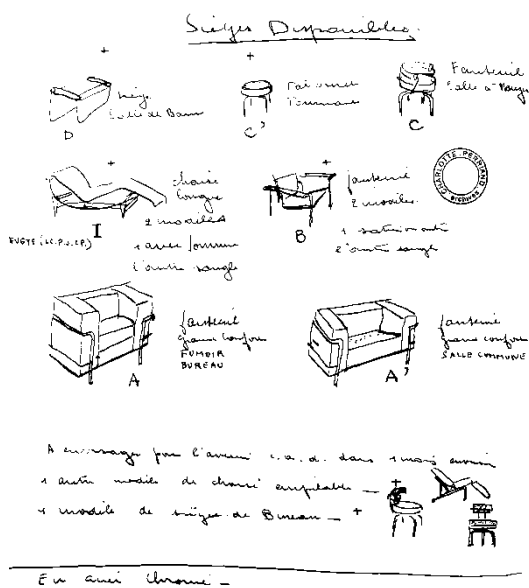 Sièges Disponibles
Siège
Salle de Bain
D
Tabouret
Tournant
C'
Fauteuil
Salle à Manger
C
chaise
longue
2 modèles
1 avec fourrure
l'autre sangle
I
BVGTE (LC.PJ.CP.)
fauteuil
2 modèles
1
2 l'autre sangle
B
CHARLOTTE PERRIAND
ARCHIVES
fauteuil
grand confort
FUMOIR
BUREAU
A
fauteuil
grand confort
SALLE COMMUNE
A'
A envisager pour l'avenir c.a.d. dans 1 mois environ
1 autre modèle de chaise empilable —
1 modèle de sièges de Bureau —
En acier chromé —